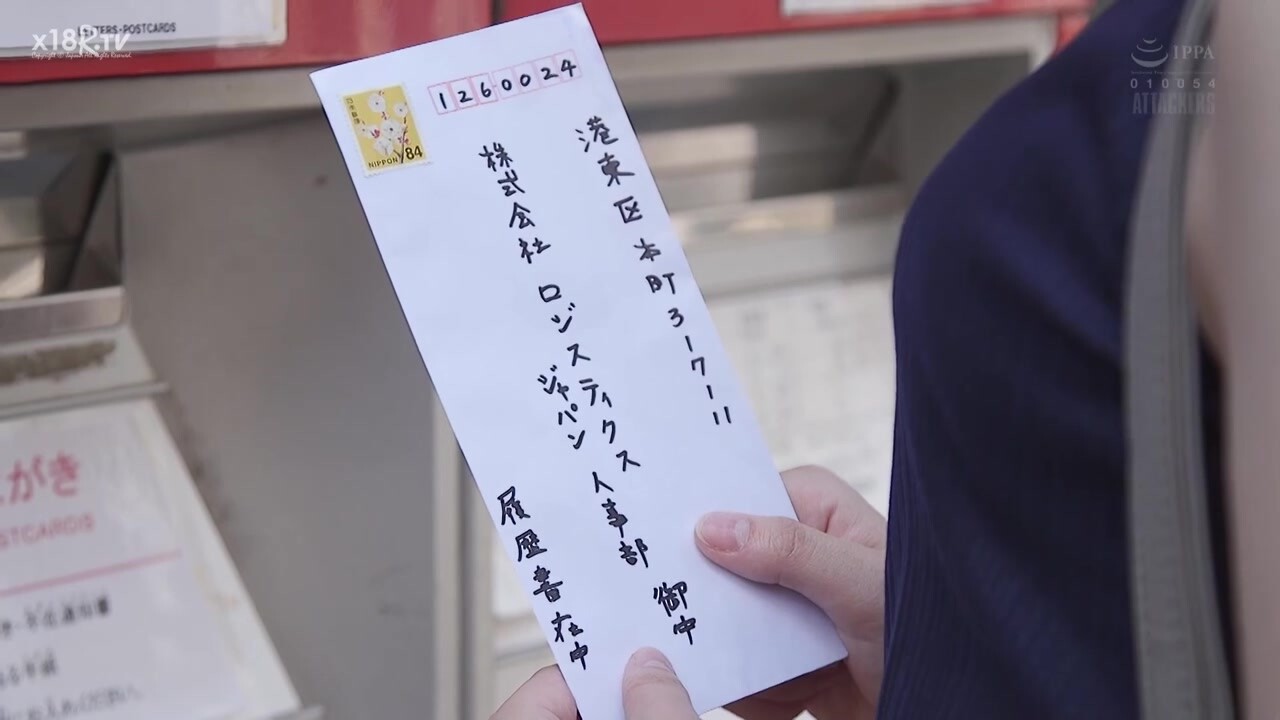 LETTERS・POSTCARDS
x18R.TV
IPPA
010054
ATTACKERS
1260024
NIPPON 84
港東区本町3-7-11
株式会社 ロジスティクス
ジャパン
人事部 御中
履歴書在中
がき
STCARDS